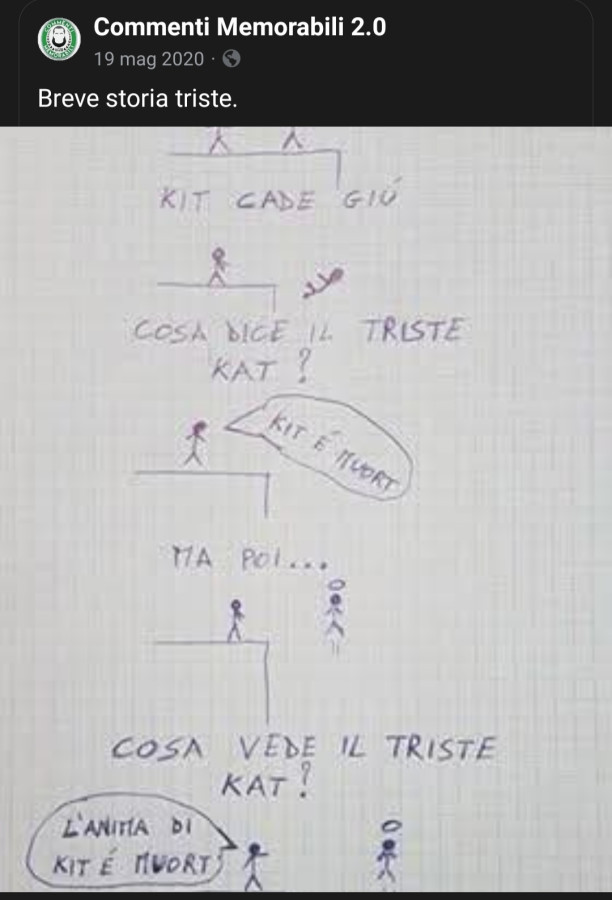 Commenti Memorabili 2.0
19 mag 2020 ·
Breve storia triste.
KIT CADE GIÚ
COSA DICE IL TRISTE
KAT?
KIT É MUORT
MA POI...
COSA VEDE IL TRISTE
KAT?
L'ANIMA DI
KIT É MUORT